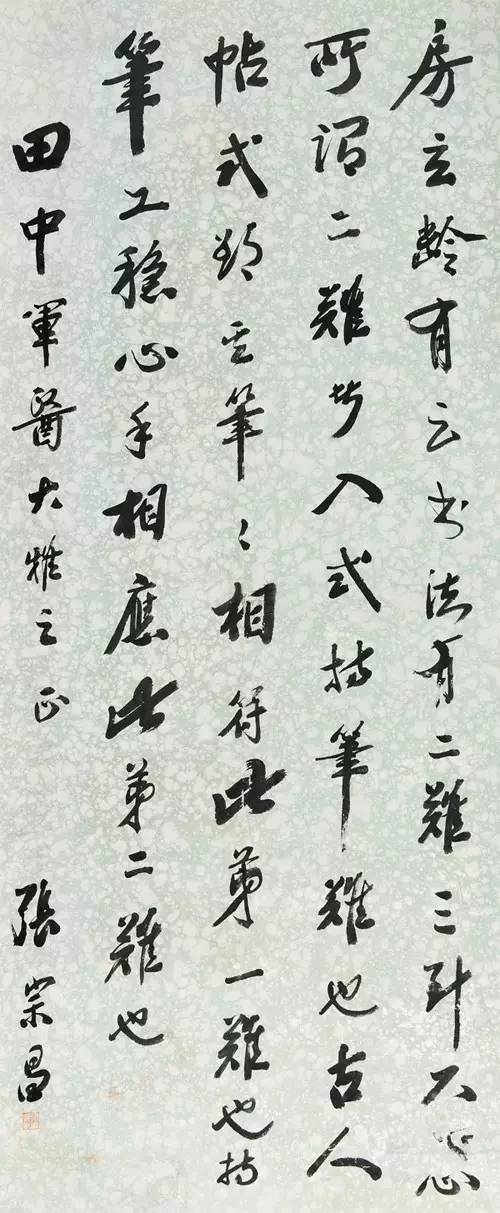 房玄齡有云书法有二難三到不心
所謂二難者入式持筆難也古人
帖式
筆〻相符此第一難也持
筆工穩心手相應此第二難也
田中軍醫大雅之正
張宗昌